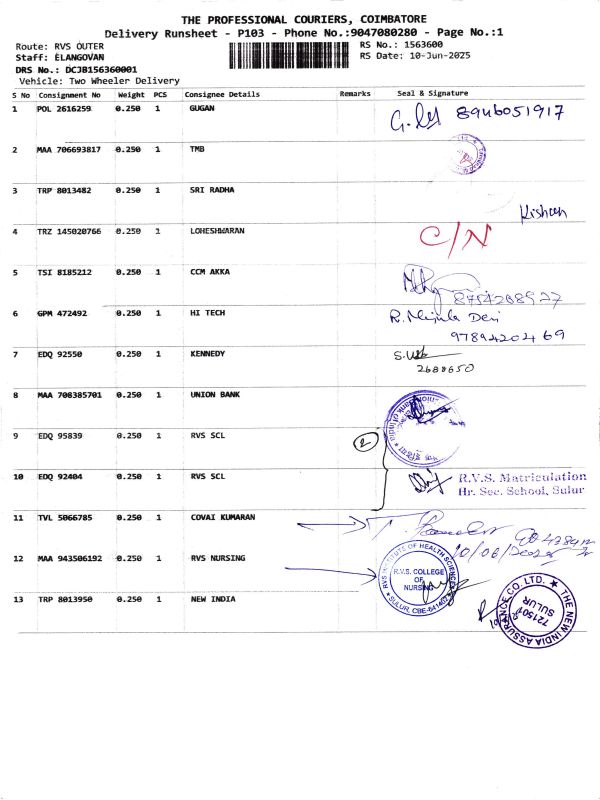 THE PROFESSIONAL COURIERS, COIMBATORE
Delivery Runsheet - P103 - Phone No.:9047080280 - Page No.:1
Route: RVS OUTER
RS No.: 1563600
Staff: ELANGOVAN
RS Date: 10-Jun-2025
DRS No.: DCJB156360001
Vehicle: Two Wheeler Delivery
S No Consignment No Weight PCS Consignee Details Remarks Seal & Signature
1 POL 2616259 0.250 1 GUGAN 8946051917
2 MAA 706693817 0.250 1 TMB
3 TRP 8013482 0.250 1 SRI RADHA Kishan
4 TRZ 145020766 0.250 1 LOHESHWARAN C/N
5 TSI 8185212 0.250 1 CCM AKKA
8754268927
6 GPM 472492 0.250 1 HI TECH R. Devi
9789420469
7 EDQ 92550 0.250 1 KENNEDY
2688650
8 MAA 708385701 0.250 1 UNION BANK
9 EDQ 95839 0.250 1 RVS SCL 2
10 EDQ 92404 0.250 1 RVS SCL R.V.S. Matriculation
Hr. Sec. School, Sulur
11 TVL 5066785 0.250 1 COVAI KUMARAN
10/06/2025
12 MAA 943506192 0.250 1 RVS NURSING
RVS INSTITUTE OF HEALTH SCIENCES
R.V.S. COLLEGE
OF
NURSING
SULUR, CBE-641402
13 TRP 8013950 0.250 1 NEW INDIA
THE NEW INDIA ASSURANCE CO. LTD.
721501
SULUR